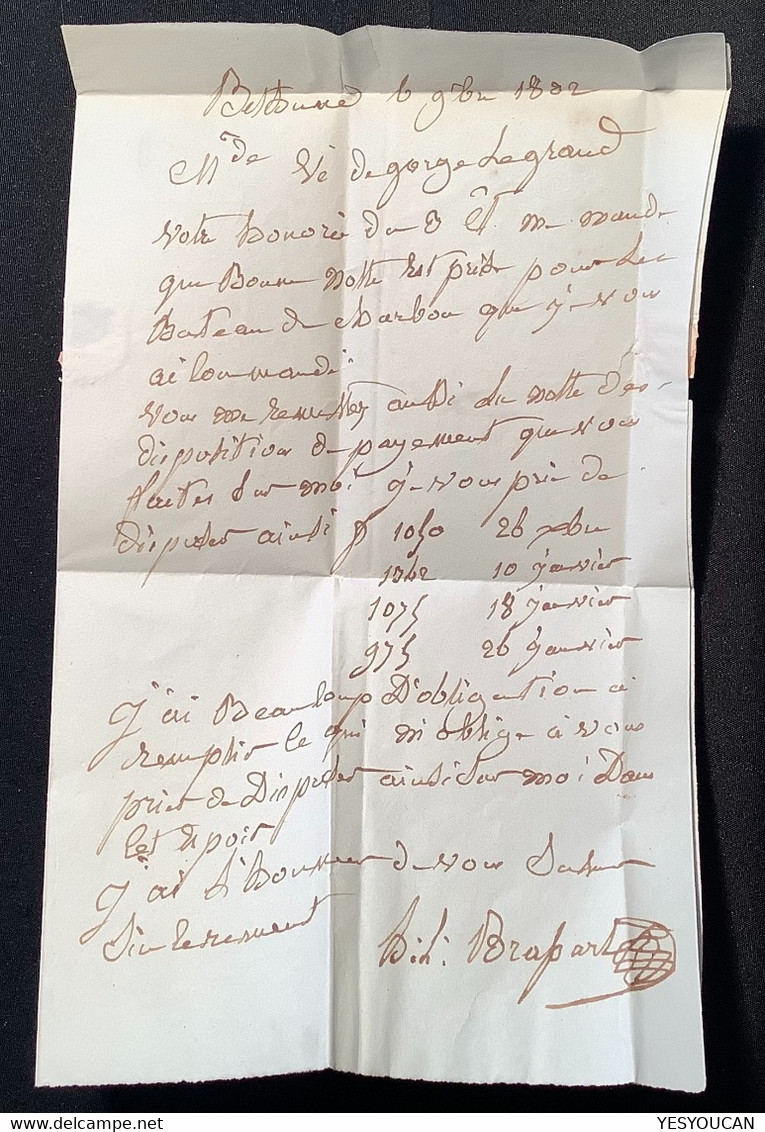 Béthune 6 9bre 1832
Mde Ve Degorge Legrand
votre honoré du 3 Ct me mande
que Bonne notte Est prise pour Le
Bateau de charbon que j-vous
ai Commandé.
vous me remettez aussi la notte des
disposition de payement que vous
faites sur moi j-vous prie de
disposer ainsi f 1050 26 xbre
1362 10 janvier
1075 18 janvier
975 26 janvier
J'ai Beaucoup D'obligation a
remplir Ce qui m'oblige a vous
prier de Disposer ainsi sur moi Dans
Cet Espoir
J'ai L'honneur de vous Saluer
Sincerement
Brapart
YESYOUCAN